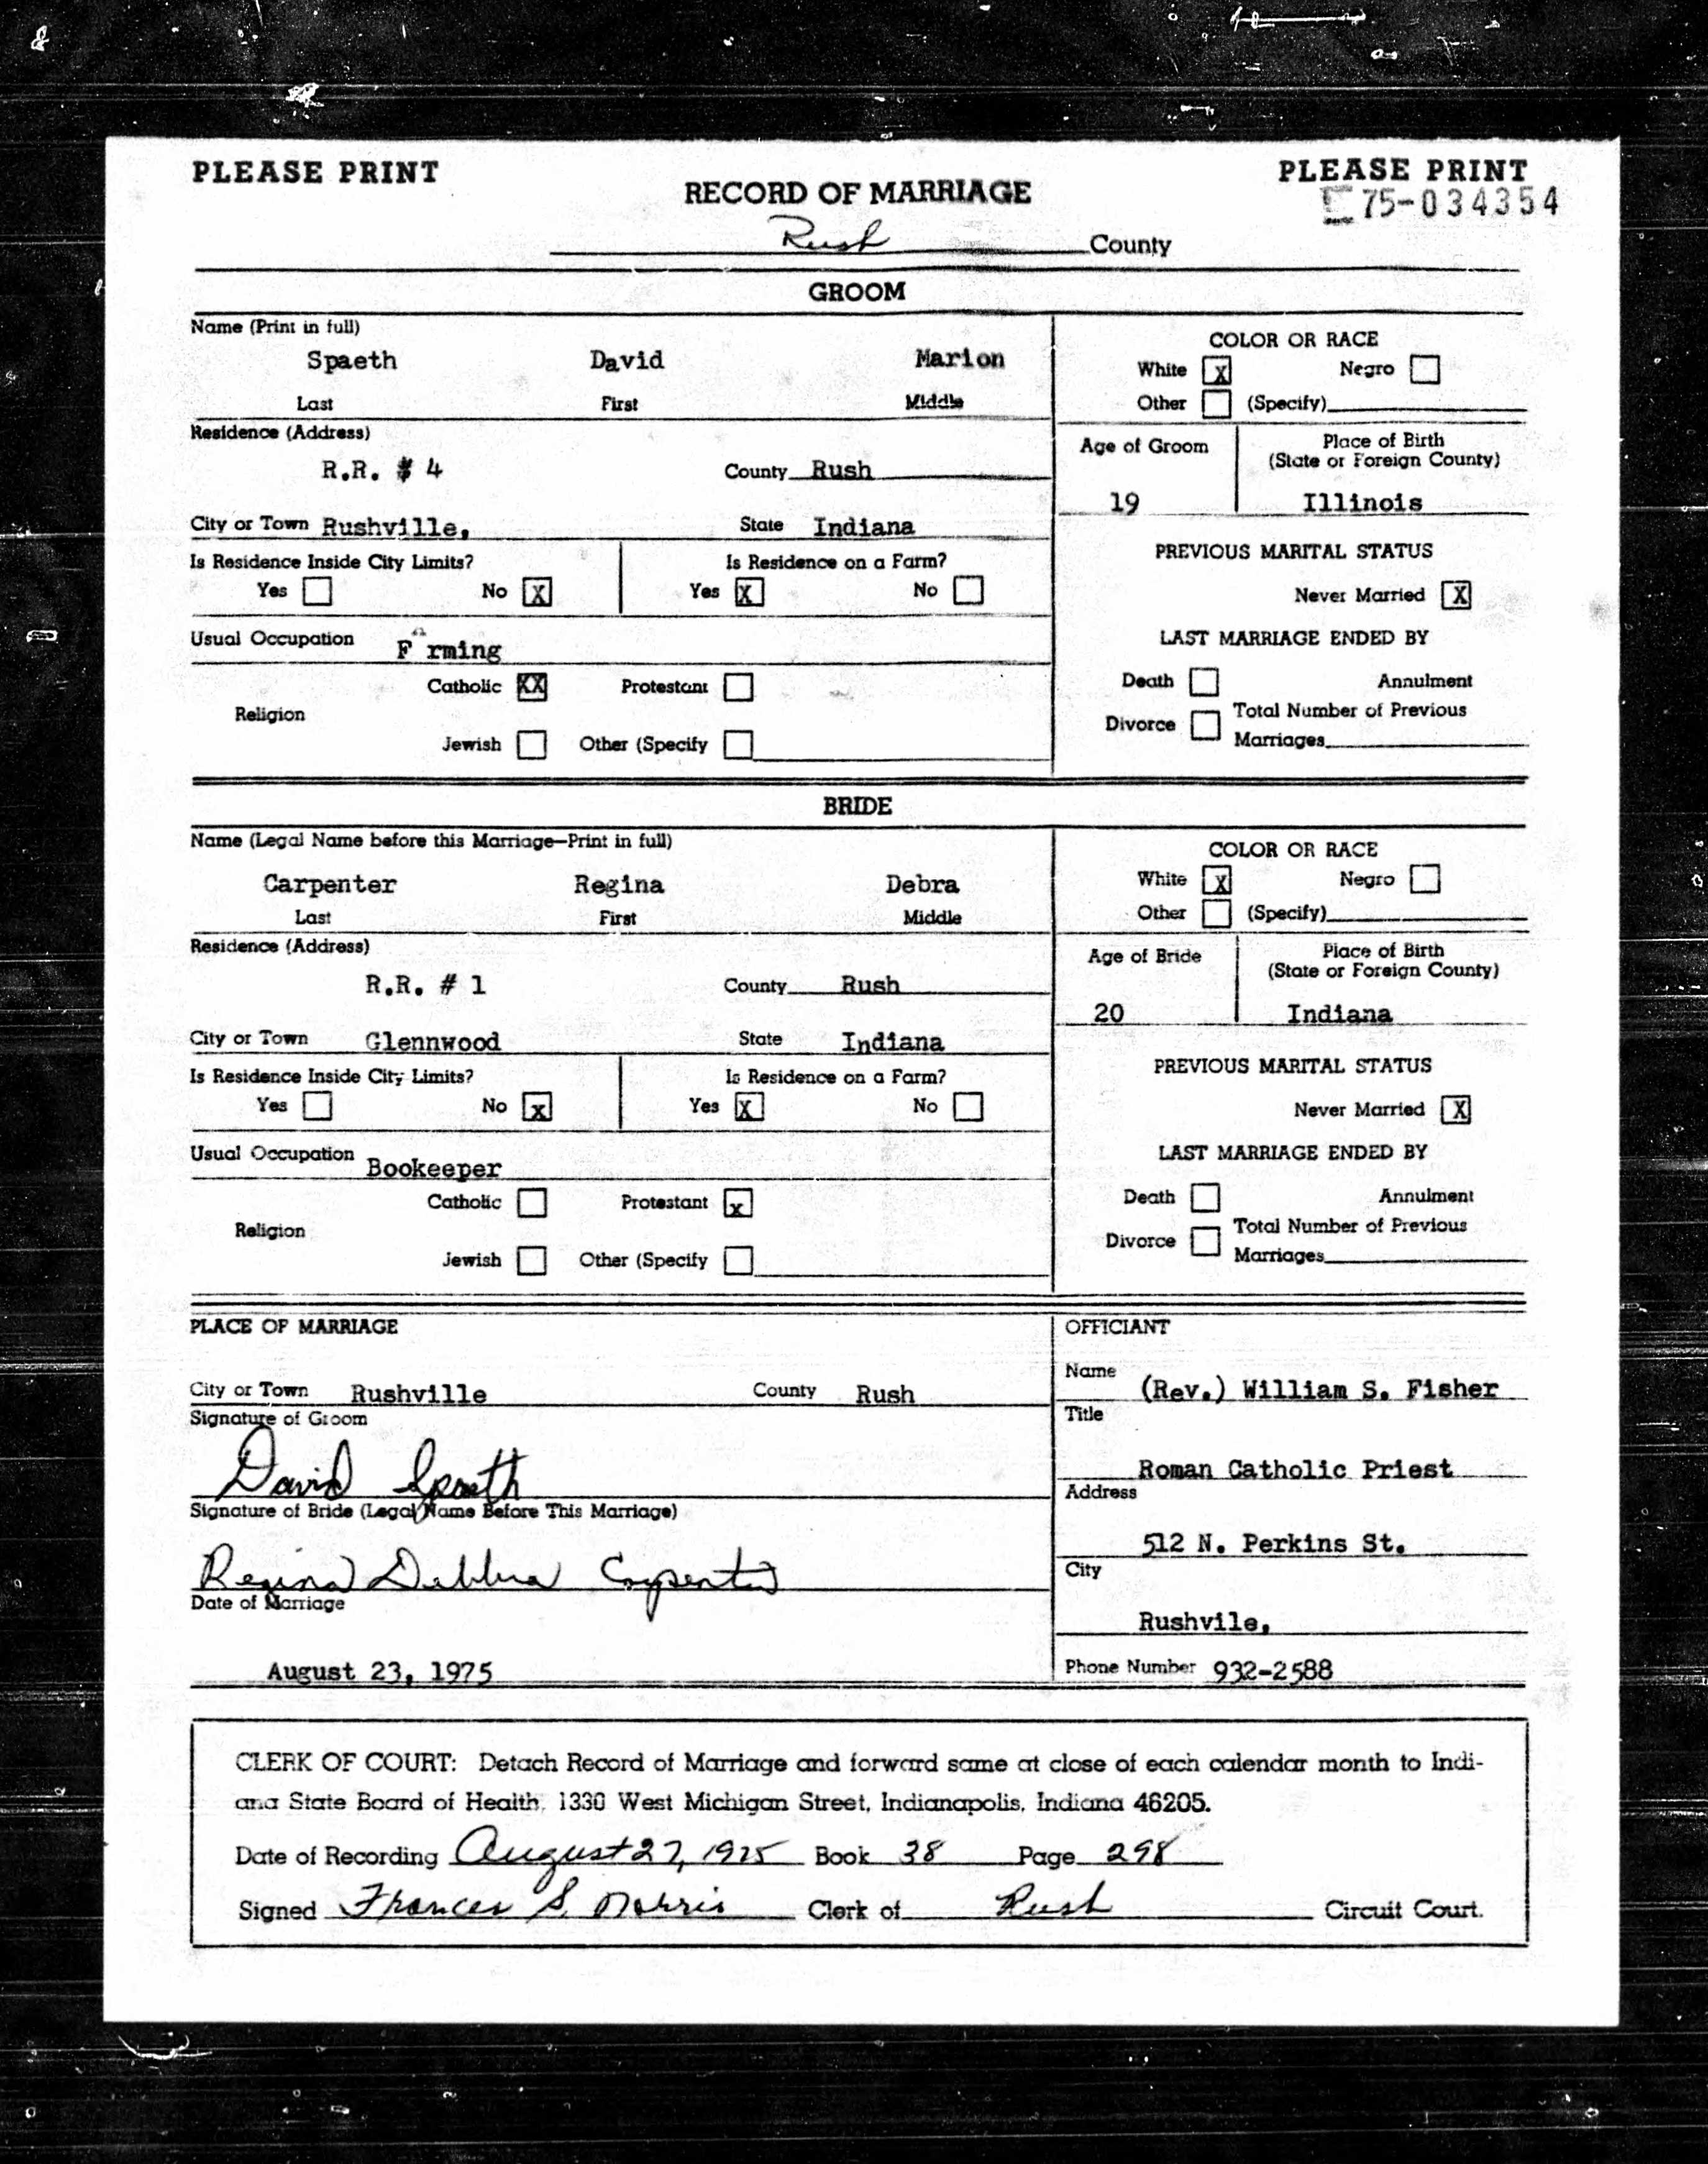 PLEASE PRINT PLEASE PRINT
RECORD OF MARRIAGE 75-034354
Rush County
GROOM
Name (Print in full)
Spaeth David Marion
Last First Middle
COLOR OR RACE
White X Negro
Other (Specify)
Residence (Address)
R.R. # 4 County Rush
City or Town Rushville, State Indiana
Age of Groom Place of Birth
(State or Foreign County)
19 Illinois
Is Residence Inside City Limits? Is Residence on a Farm?
Yes No X Yes X No
PREVIOUS MARITAL STATUS
Never Married X
Usual Occupation Farming
LAST MARRIAGE ENDED BY
Catholic XX Protestant
Religion
Jewish Other (Specify
Death Annulment
Divorce Total Number of Previous
Marriages
BRIDE
Name (Legal Name before this Marriage—Print in full)
Carpenter Regina Debra
Last First Middle
COLOR OR RACE
White X Negro
Other (Specify)
Residence (Address)
R.R. # 1 County Rush
City or Town Glennwood State Indiana
Age of Bride Place of Birth
(State or Foreign County)
20 Indiana
Is Residence Inside City Limits? Is Residence on a Farm?
Yes No x Yes X No
PREVIOUS MARITAL STATUS
Never Married X
Usual Occupation Bookeeper
LAST MARRIAGE ENDED BY
Catholic Protestant x
Religion
Jewish Other (Specify
Death Annulment
Divorce Total Number of Previous
Marriages
PLACE OF MARRIAGE
City or Town Rushville County Rush
Signature of Groom
David Spaeth
Signature of Bride (Legal Name Before This Marriage)
Regina Debbra Carpenter
Date of Marriage
August 23, 1975
OFFICIANT
Name (Rev.) William S. Fisher
Title
Roman Catholic Priest
Address
512 N. Perkins St.
City
Rushvile,
Phone Number 932-2588
CLERK OF COURT: Detach Record of Marriage and forward same at close of each calendar month to Indi-
ana State Board of Health, 1330 West Michigan Street, Indianapolis, Indiana 46205.
Date of Recording August 27, 1975 Book 38 Page 298
Signed Frances S. Norris Clerk of Rush Circuit Court.